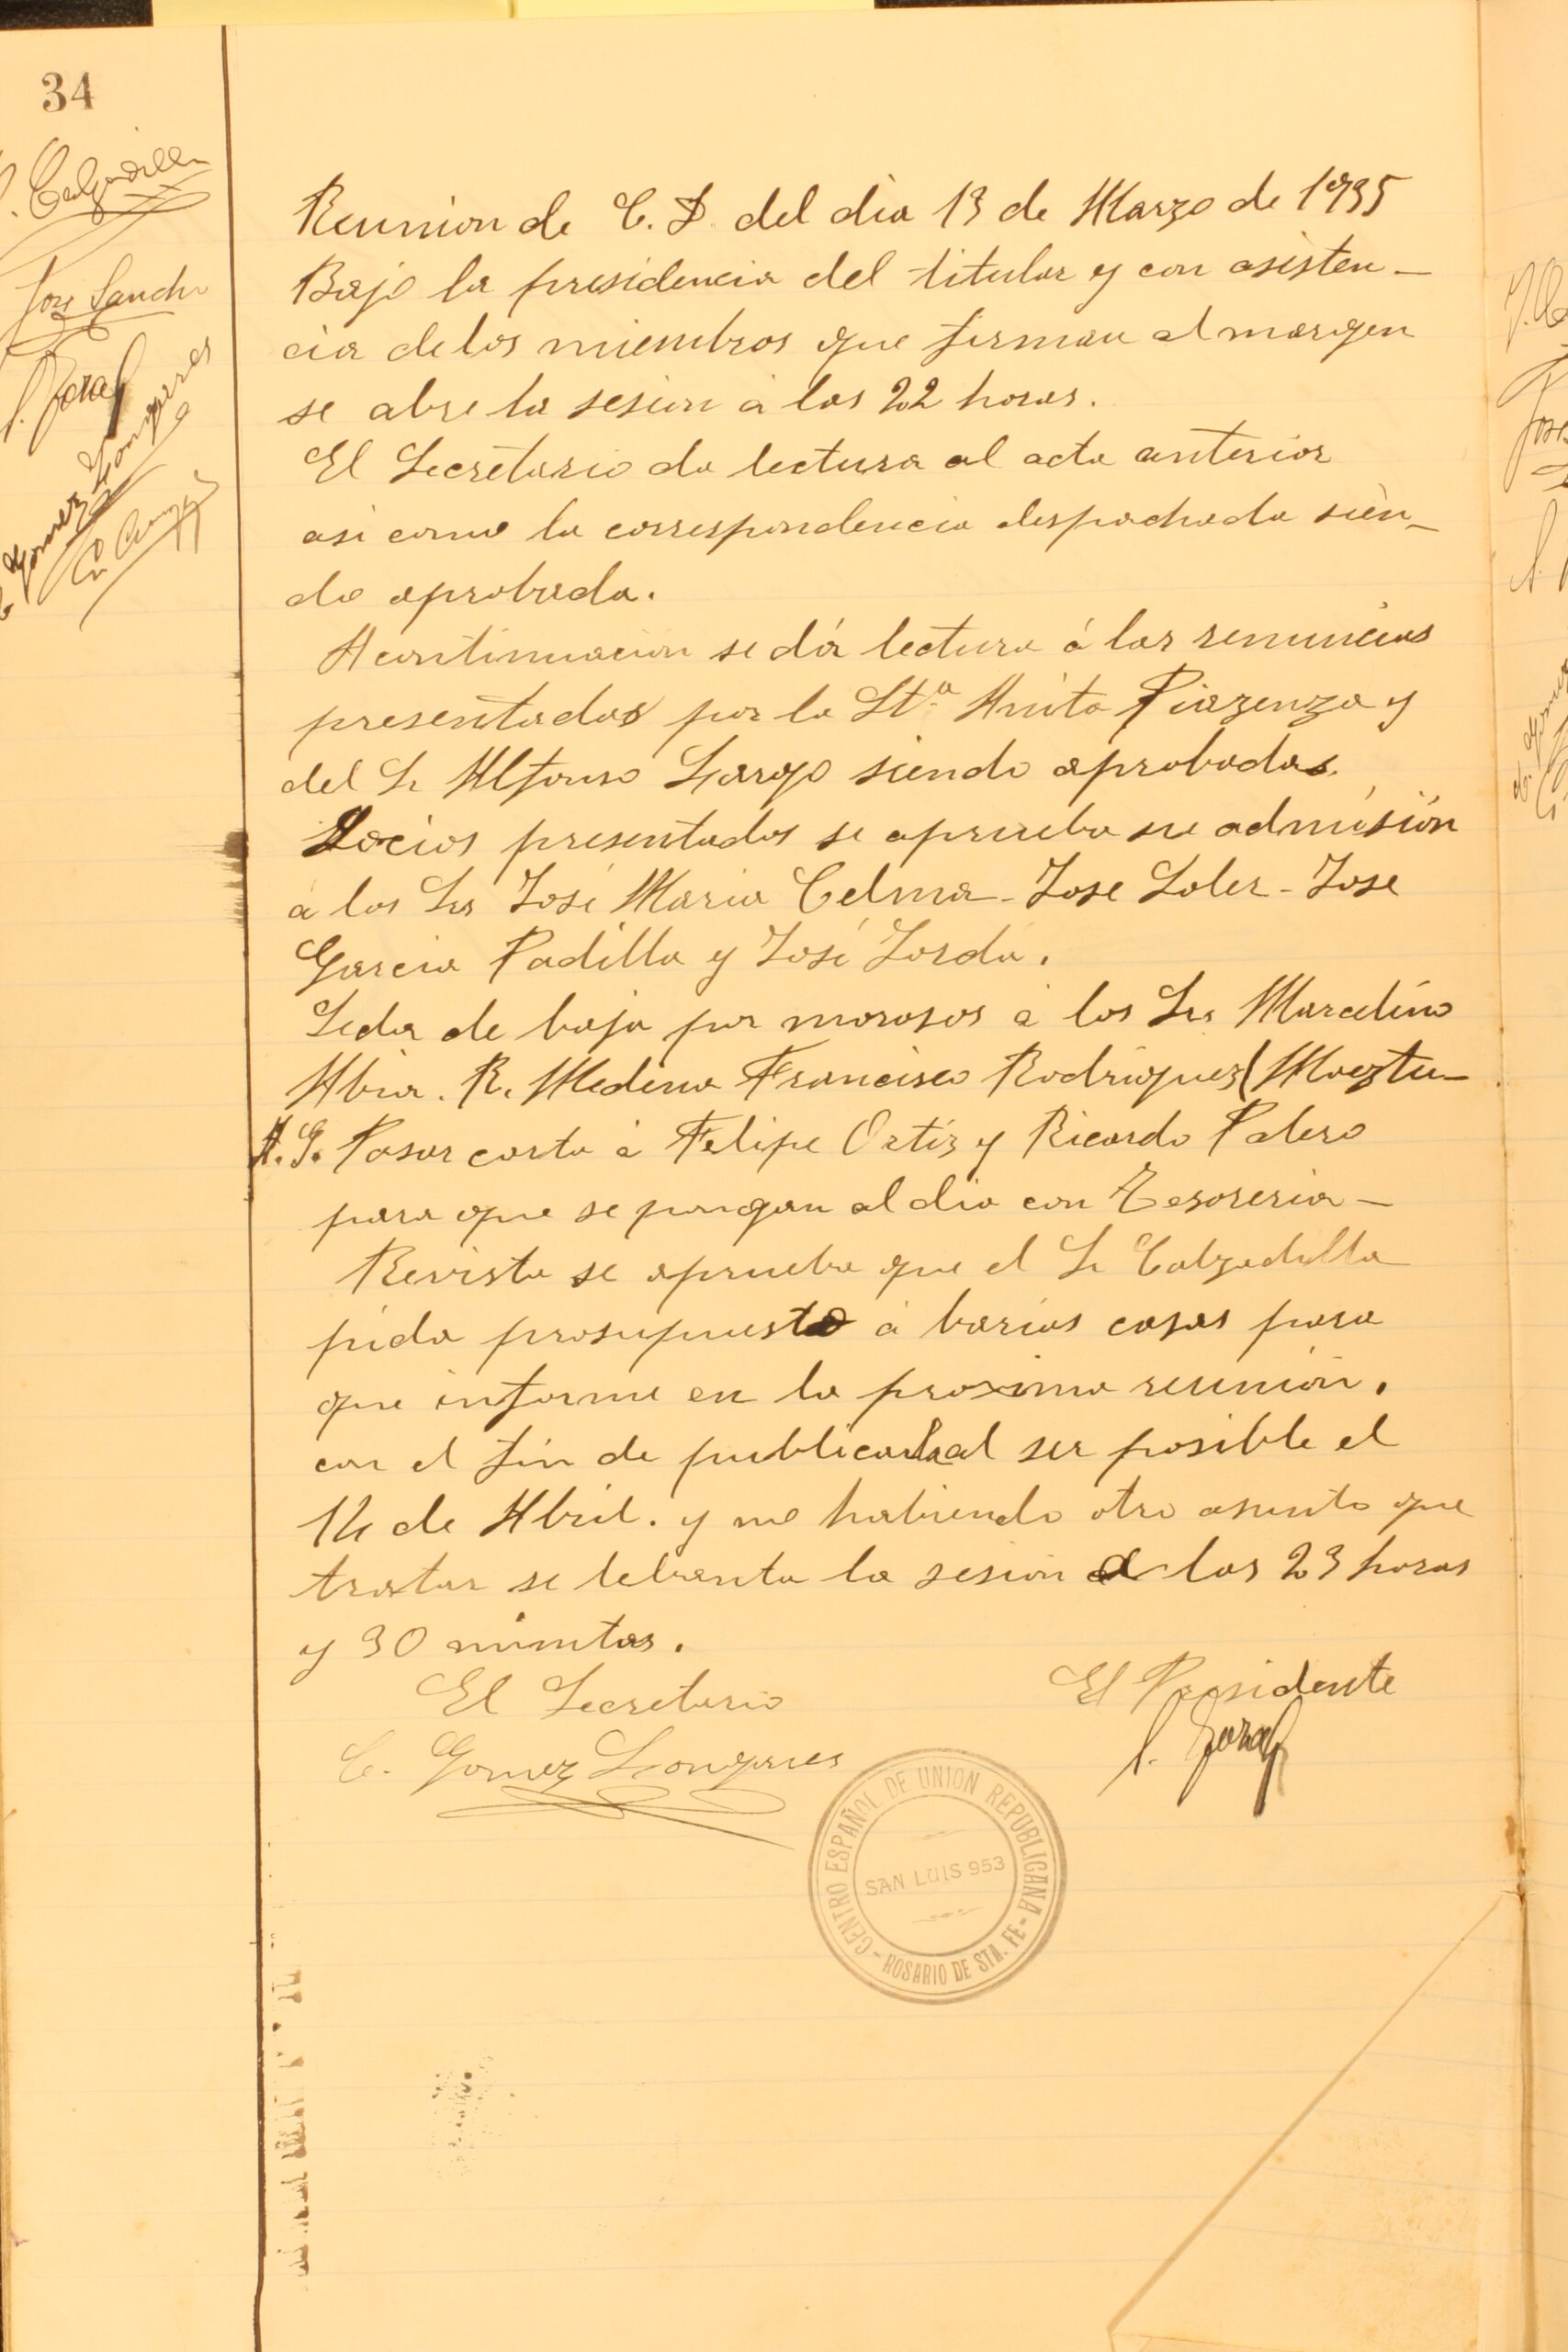 34
Calzadilla
Jose Sancho
Gomez Longares
Reunion de C. D. del dia 13 de Marzo de 1935
Bajo la presidencia del titular y con asisten-
cia de los miembros que firman al margen
se abre la sesion a las 22 horas.
El Secretario da lectura al acta anterior
asi como la correspondencia despachada sien-
do aprobada.
A continuacion se dá lectura á las renuncias
presentadas por la Sta Anita Piazenza y
del Sr Alfonso Largo siendo aprobadas.
Socios presentados se aprueba su admisiön
a los Srs José Maria Celma - Jose Soler - Jose
Garcia Padilla y José Jorda.
Se da de baja por morosos a los Srs Marcelino
Abia. R. Medina Francisco Rodriguez Maeztu-
A.G. Pasar carta á Felipe Ortiz y Ricardo Palero
para que se pongan al dia con Tesoreria -
Revista se aprueba que el Sr Calzadilla
pida prosupuesto á barias casas para
que informe en la proxima reunion.
con el fin de publicarla al ser posible el
14 de Abril. y no habiendo otro asunto que
tratar se lebanta la sesion a las 23 horas
y 30 minutos.
El Secretario
El Presidente
C. Gomez Longares
CENTRO ESPAÑOL DE UNION REPUBLICANA
SAN LUIS 953
- ROSARIO DE STA. FE -